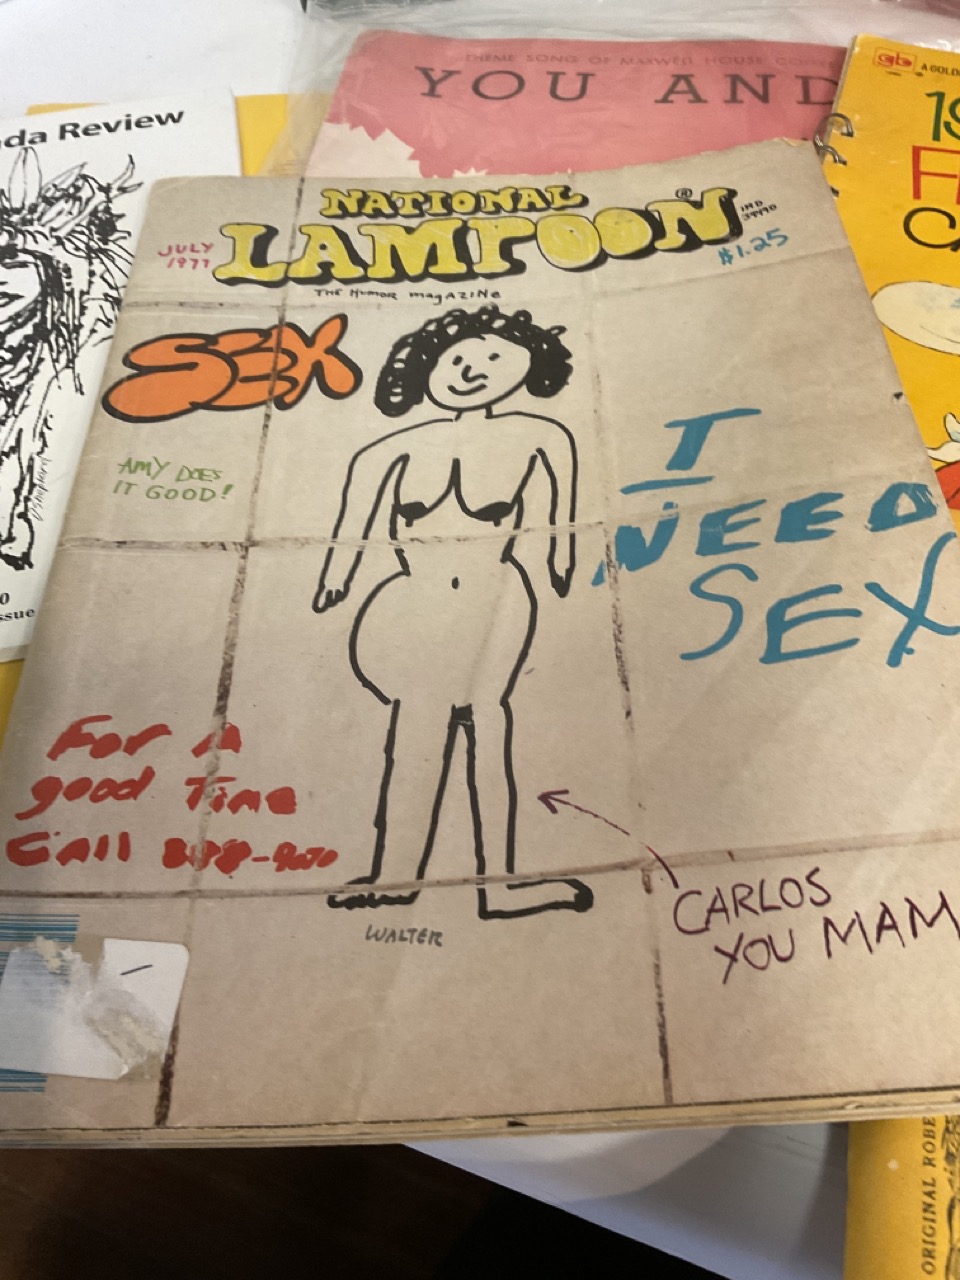 da Review
THEME SONG OF MAXWELL HOUSE
YOU AND
gb
A GOLD
NATIONAL
LAMPOON
®
JULY
1977
$1.25
THE HUMOR MAGAZINE
SEX
AMY DOES
IT GOOD!
I
NEED
SEX
For A
good Time
Call
CARLOS
YOU MAM
WALTER
0
ssue
ORIGINAL ROBE